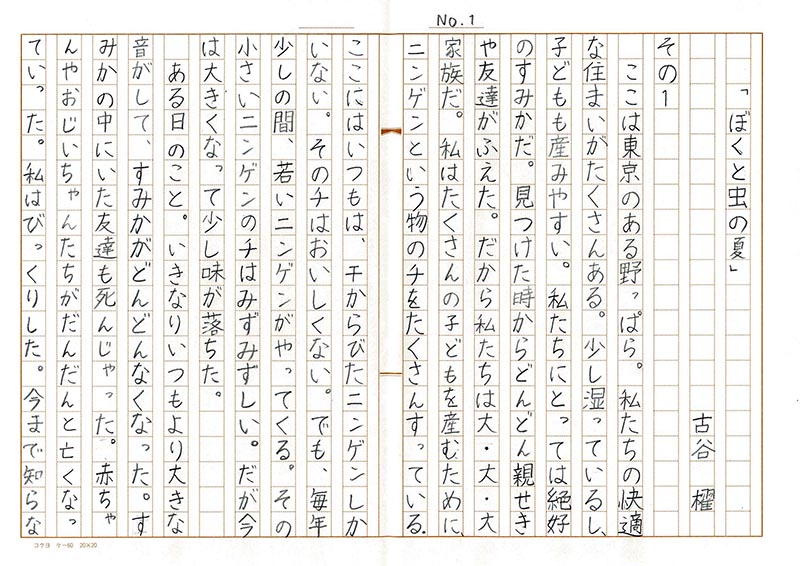 No.1
「ぼくと虫の夏」
古谷 櫂
その1
ここは東京のある野っぱら。私たちの快適
な住まいがたくさんある。少し湿っているし、
子どもも産みやすい。私たちにとっては絶好
のすみかだ。見つけた時からどんどん親せき
や友達がふえた。だから私たちは大・大・大
家族だ。私はたくさんの子どもを産むために、
ニンゲンという物のチをたくさんすっている。
ここにはいつもは、干からびたニンゲンしか
いない。そのチはおいしくない。でも、毎年
少しの間、若いニンゲンがやってくる。その
小さいニンゲンのチはみずみずしい。だが今
は大きくなって少し味が落ちた。
ある日のこと。いきなりいつもより大きな
音がして、すみかがどんどんなくなった。す
みかの中にいた友達も死んじゃった。赤ちゃ
んやおじいちゃんたちがだんだんと亡くなっ
ていった。私はびっくりした。今まで知らな
コクヨ ケー60 20×20